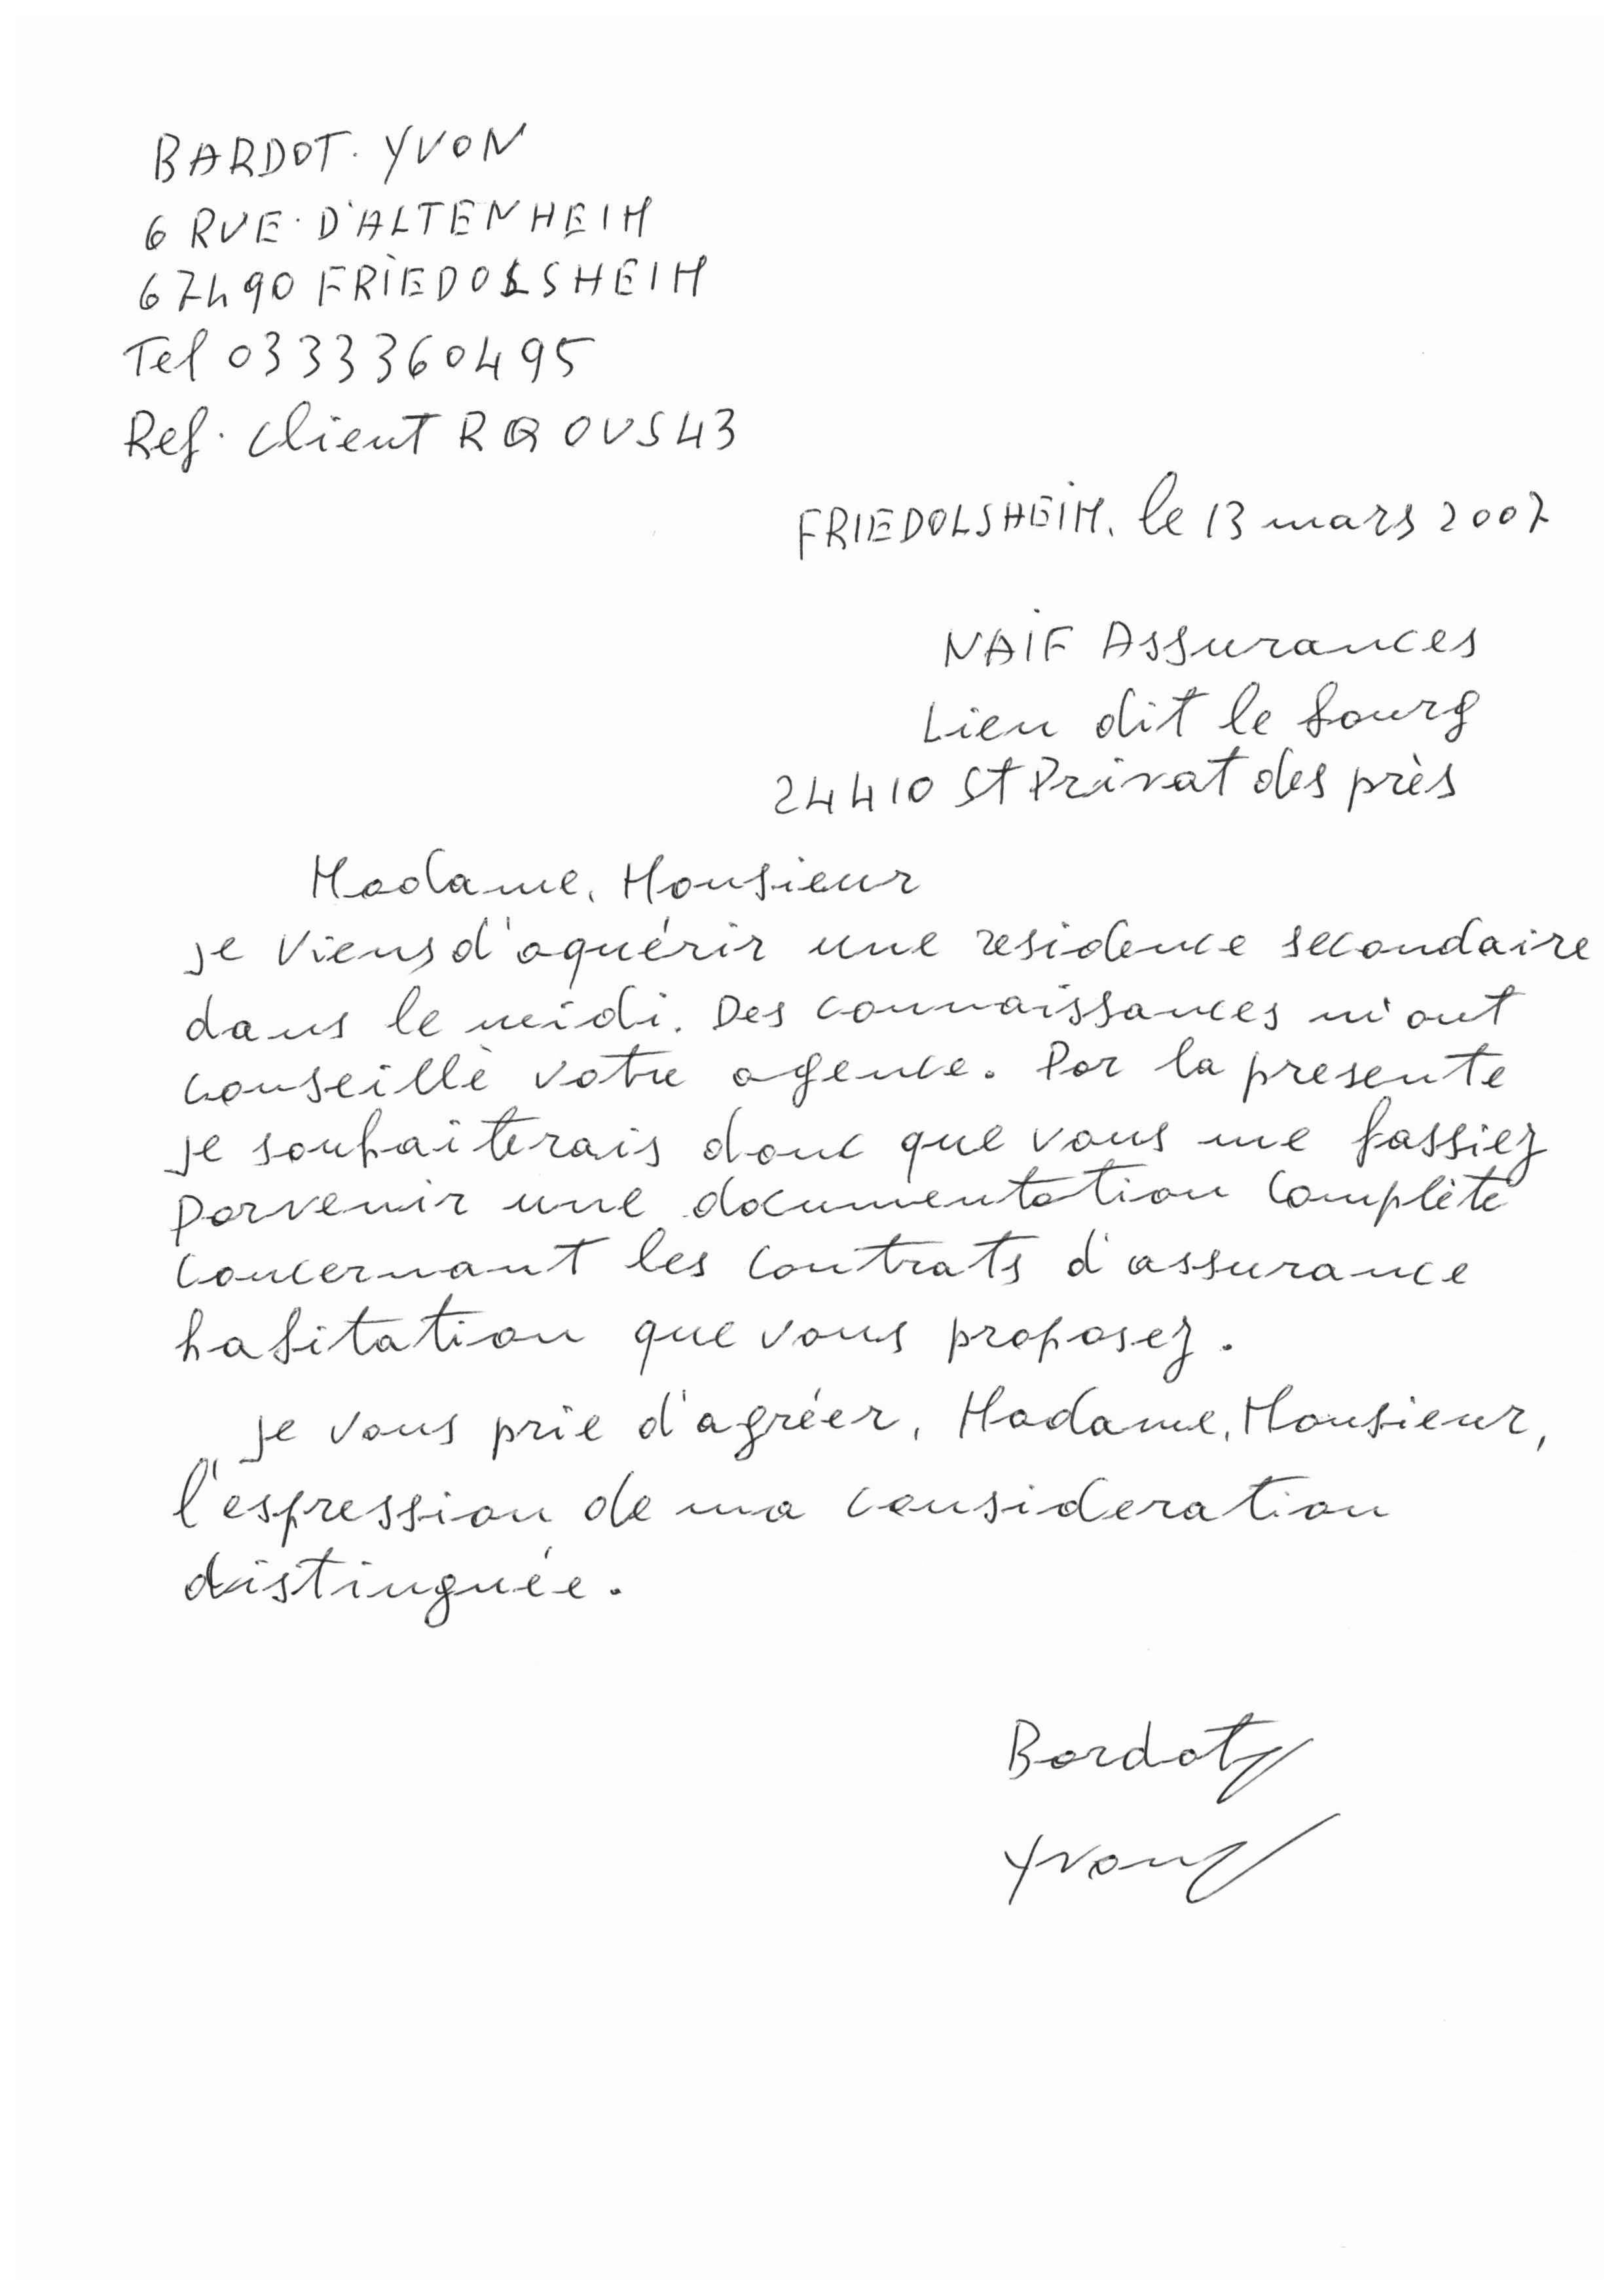 BARDOT. YVON
6 RUE. D'ALTENHEIM
67490 FRIEDOLSHEIM
Tel 0333360495
Ref. client RQOVS43
FRIEDOLSHEIM, le 13 mars 2007
NAIF Assurances
Lieu dit le bourg
24410 St Privat des près
Madame, Monsieur
je viens d'aquérir une residence secondaire
dans le midi. Des connaissances m'ont
conseillè votre agence. Par la presente
je souhaiterais donc que vous me fassiez
parvenir une documentation complète
concernant les contrats d'assurance
habitation que vous proposez.
je vous prie d'agréer, Madame, Monsieur,
l'espression de ma consideration
distinguée.
Bardot
Yvon